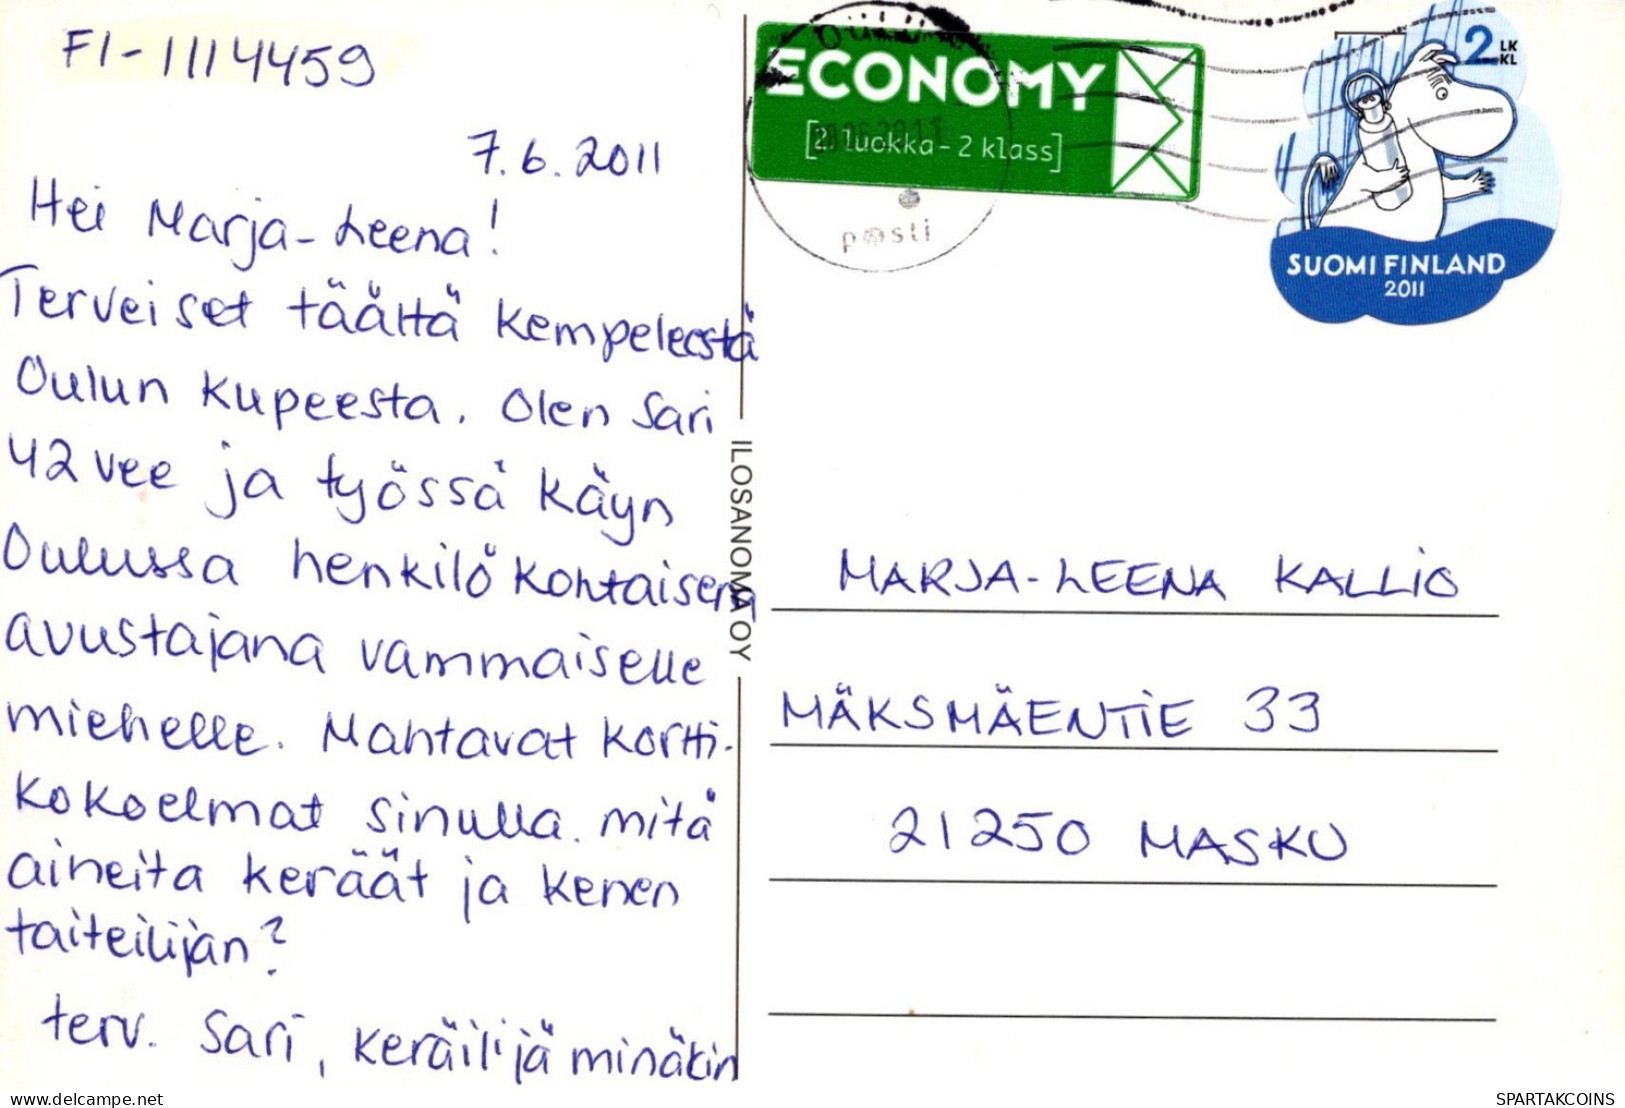 FI-1114459
7.6.2011
Hei Marja-Leena!
Terveiset täältä Kempeleestä
Oulun kupeesta. Olen Sari
42 vee ja työssä käyn
Oulussa henkilökohtaisena
avustajana vammaiselle
miehelle. Mahtavat kortti-
kokoelmat sinulla. mitä
aineita keräät ja kenen
taiteilijan?
terv. Sari, keräilijä minäkin
ECONOMY
[2. luokka - 2 klass]
posti
2 LK
KL
SUOMI FINLAND
2011
ILOSANOMA OY
MARJA-LEENA KALLIO
MÄKSMÄENTIE 33
21250 MASKU
delcampe.net
SPARTAKCOINS